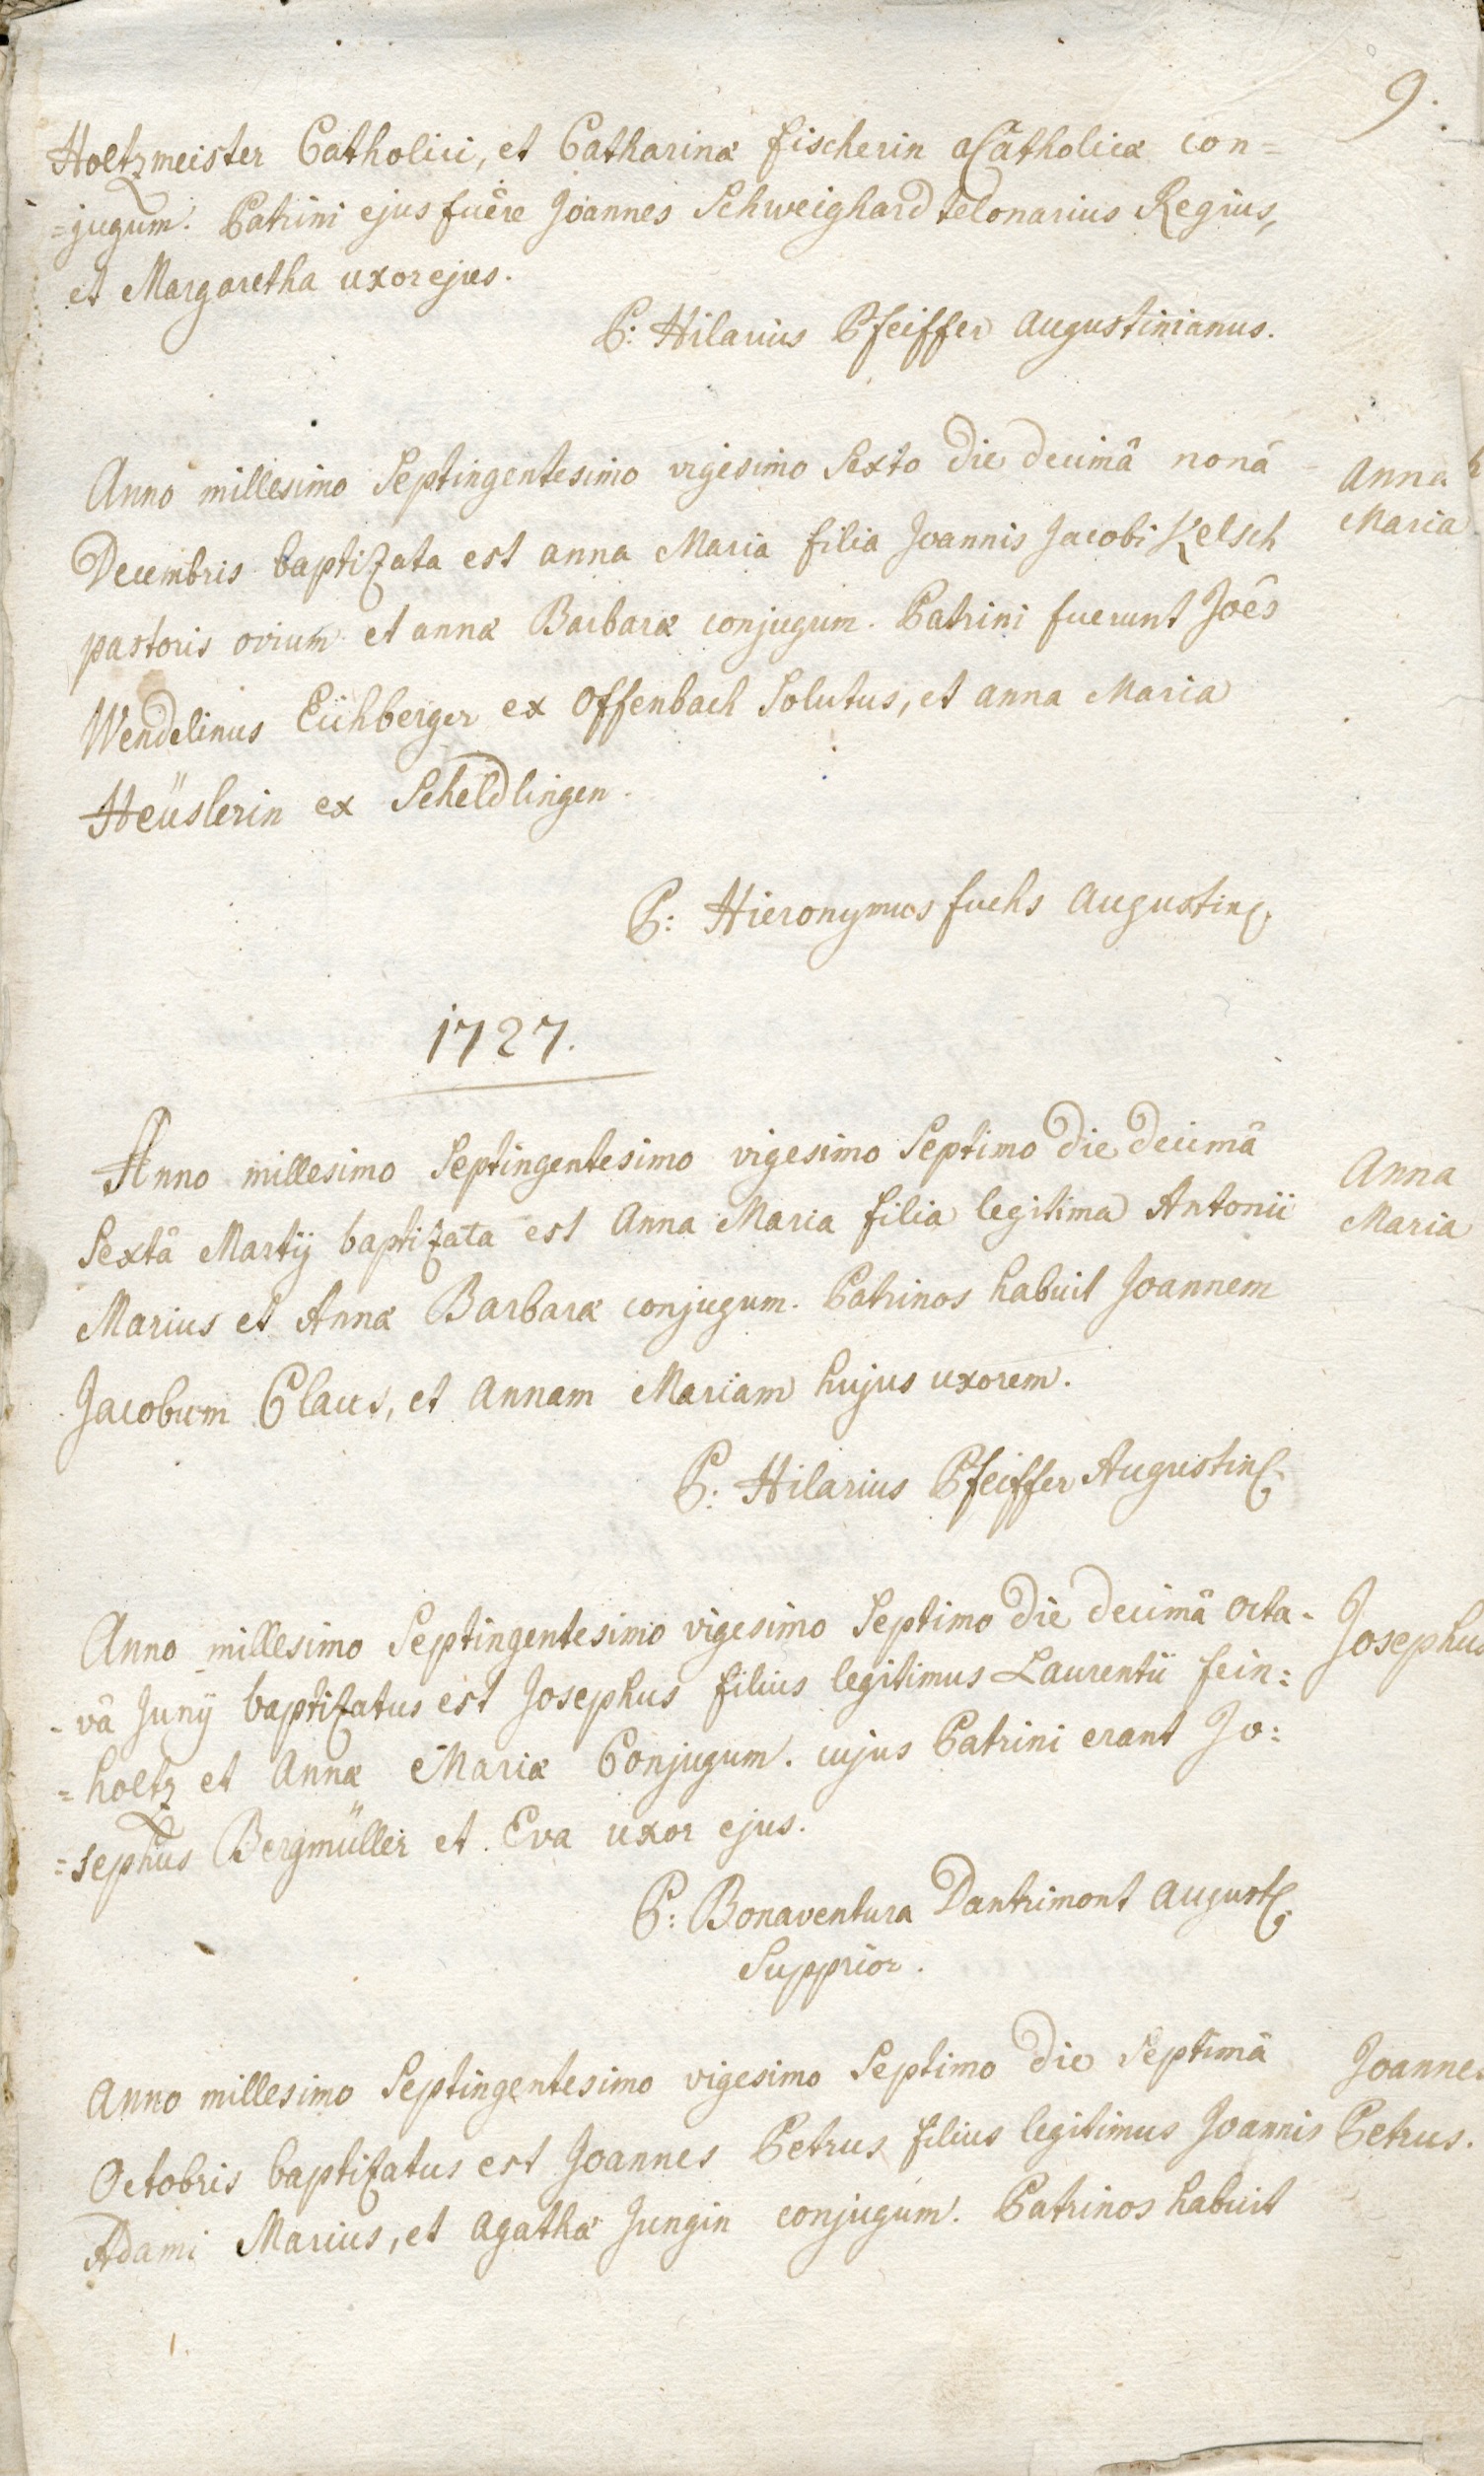 9.
Holtzmeister Catholici, et Catharinæ fischerin aCatholicæ con=
=jugum. Patrini ejus fuêre Joannes Schweighard telonarius Regius,
et Margaretha uxor ejus.
P: Hilarius Pfeiffer Augustinianus.
Anno millesimo Septingentesimo vigesimo Sexto die decimâ nonâ
Anna
Decembris baptizata est anna Maria filia Joannis Jacobi Kelsch
Maria
pastoris ovium et annæ Barbaræ conjugum. Patrini fuerunt Joẽs
Wendelinus Eichberger ex Offenbach Solutus, et anna Maria
Heüslerin ex Scheldlingen.
P: Hieronymus fuchs Augustin9
1727.
Anno millesimo Septingentesimo vigesimo Septimo die decimâ
Anna
Sextâ Martij baptizata est Anna Maria filia legitima Antonii
Maria
Marius et Annæ Barbaræ conjugum. Patrinos habuit Joannem
Jacobum Claus, et Annam Mariam hujus uxorem.
P: Hilarius Pfeiffer Augustin9
Anno millesimo Septingentesimo vigesimo Septimo die decimâ octa-
Josephus
-vâ Junij baptizatus est Josephus filius legitimus Laurentii fein:
=holtz et Annæ Mariæ Conjugum. cujus Patrini erant Jo:
=sephus Bergmüller et Eva uxor ejus.
P: Bonaventura Dantrimont August9
Supprior.
Anno millesimo Septingentesimo vigesimo Septimo die Septimâ
Joannes
Octobris baptizatus est Joannes Petrus filius legitimus Joannis
Petrus.
Adami Marius, et Agathæ Jungin conjugum. Patrinos habuit